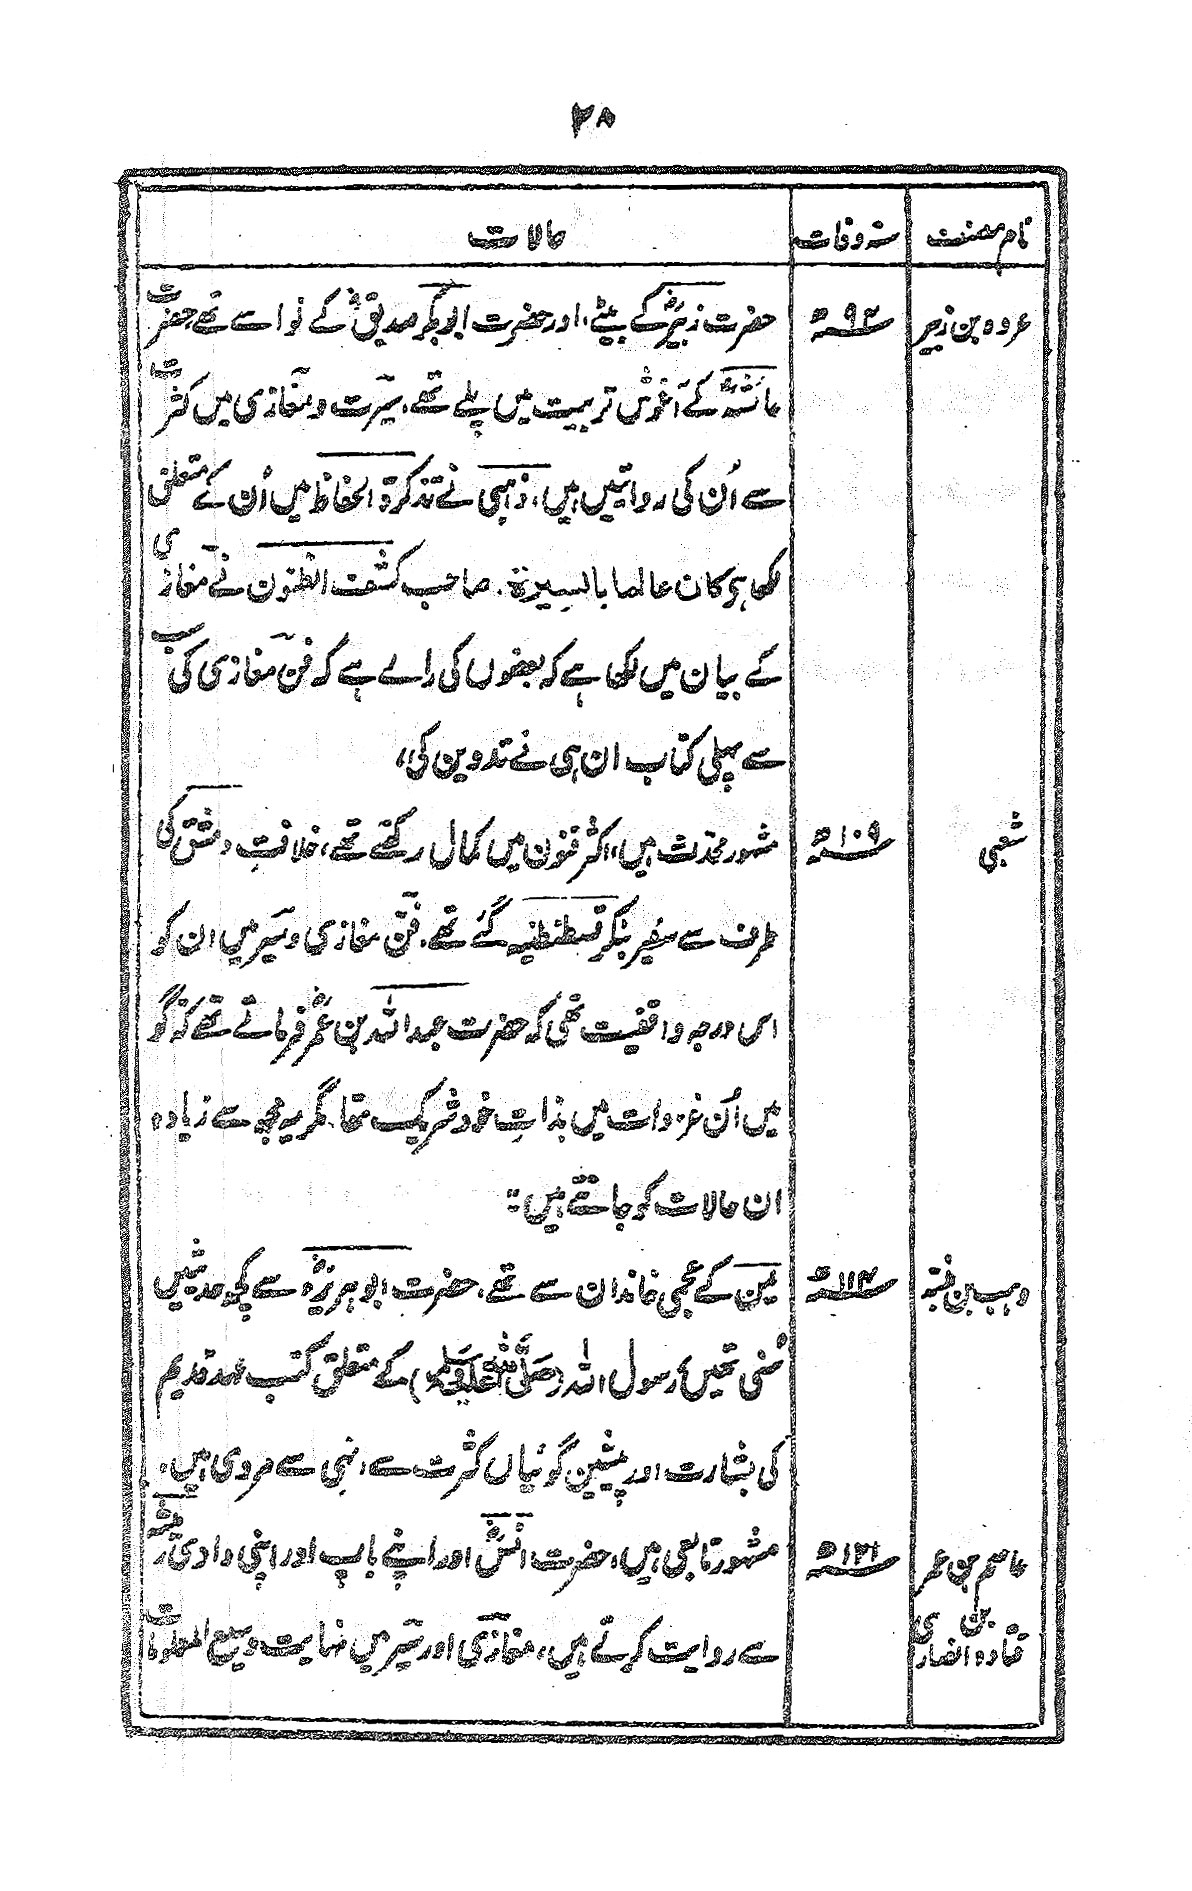 ۲۸
نام مصنف سنہ وفات حالات
عروہ بن زبیر ۹۴ھ حضرت زبیرؓ کے بیٹے، اور حضرت ابوبکر صدیقؓ کے نواسے تھے، حضرت
عائشہؓ کے آغوش تربیت میں پلے تھے، سیرت و مغازی میں کثرت
سے اُن کی روایتیں ہیں، ذہبی نے تذکرۃ الحفاظ میں اُن کے متعلق
لکھا ہی کان عالما بالسیرۃ۔ صاحب کشف الظنون نے مغازی
کے بیان میں لکھا ہے کہ بعضوں کی رائے ہے کہ فن مغازی کی سب
سے پہلی کتاب ان ہی نے تدوین کی،
شعبی ۱۰۹ھ مشہور محدث ہیں، اکثر فنون میں کمال رکھتے تھے، خلافتِ دمشق کی
طرف سے سفیر بنکر قسطنطنیہ گئے تھے۔ فن مغازی و سیر میں ان کو
اس درجہ واقفیت تھی کہ حضرت عبداللہ بن عمرؓ فرماتے تھے کہ گو
میں اُن غزوات میں بذاتِ خود شریک تھا۔ مگر یہ مجھ سے زیادہ
ان حالات کو جانتے ہیں"
وہب بن منبہ ۱۱۴ھ یمن کے عجمی خاندان سے تھے، حضرت ابوہریرہؓ سے کچھ حدیثیں
سُنی تھیں، رسول اللہ (صلی اللہ علیہ وسلم) کے متعلق کتب عہد قدیم
کی بشارت اور پیشین گوئیاں کثرت سے انہی سے مروی ہیں۔
عاصم بن عمر ۱۲۱ھ مشہور تابعی ہیں، حضرت انسؓ اور اپنے باپ اور اپنی دادی رمیثہ
بن قتادہ انصاری سے روایت کرتے ہیں، مغازی اور سیر میں نہایت وسیع المعلومات